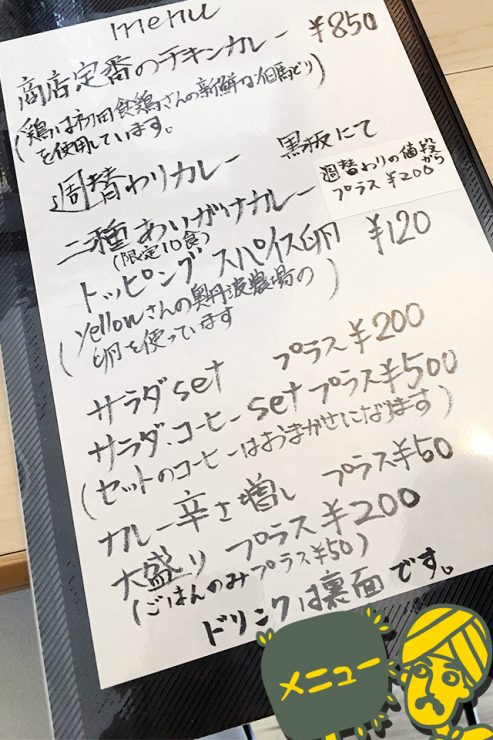 menu
商店定番のチキンカレー ¥850
(鶏は初田食鶏さんの新鮮な但馬どり
を使用しています。)
週替わりカレー 黒板にて
二種あいがけカレー 週替わりの値段から
プラス ¥200
(限定10食)
トッピング スパイス卵 ¥120
(yellowさんの奥丹波農場の
卵を使っています)
サラダset プラス¥200
サラダ.コーヒーset プラス¥500
(セットのコーヒーはおまかせになります)
カレー辛さ増し プラス¥50
大盛り プラス¥200
(ごはんのみプラス¥50)
ドリンクは裏面です。
メニュー